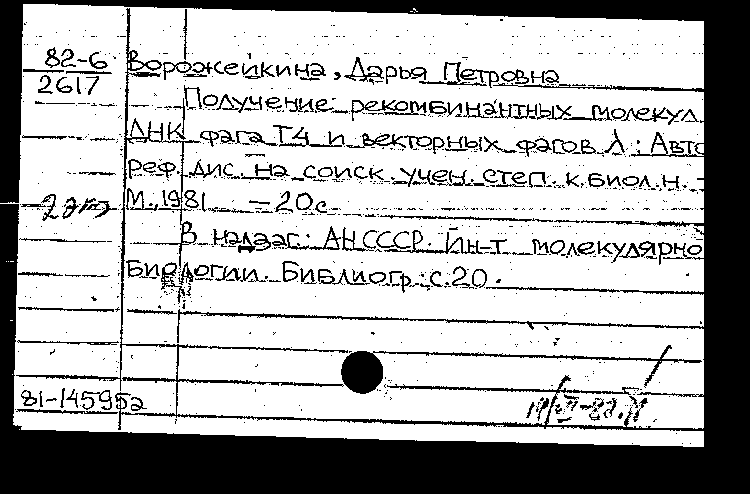 82-6
2617
Ворожейкина, Дарья Петровна
Получение рекомбинантных молекул
ДНК фага Т4 и векторных фагов λ: Авто
реф. дис. на соиск. учен. степ. к.биол.н. -
М., 1981 - 20с.
В надзаг: АН СССР. Ин-т молекулярно
биологии. Библиогр.: с.20.
81-145952